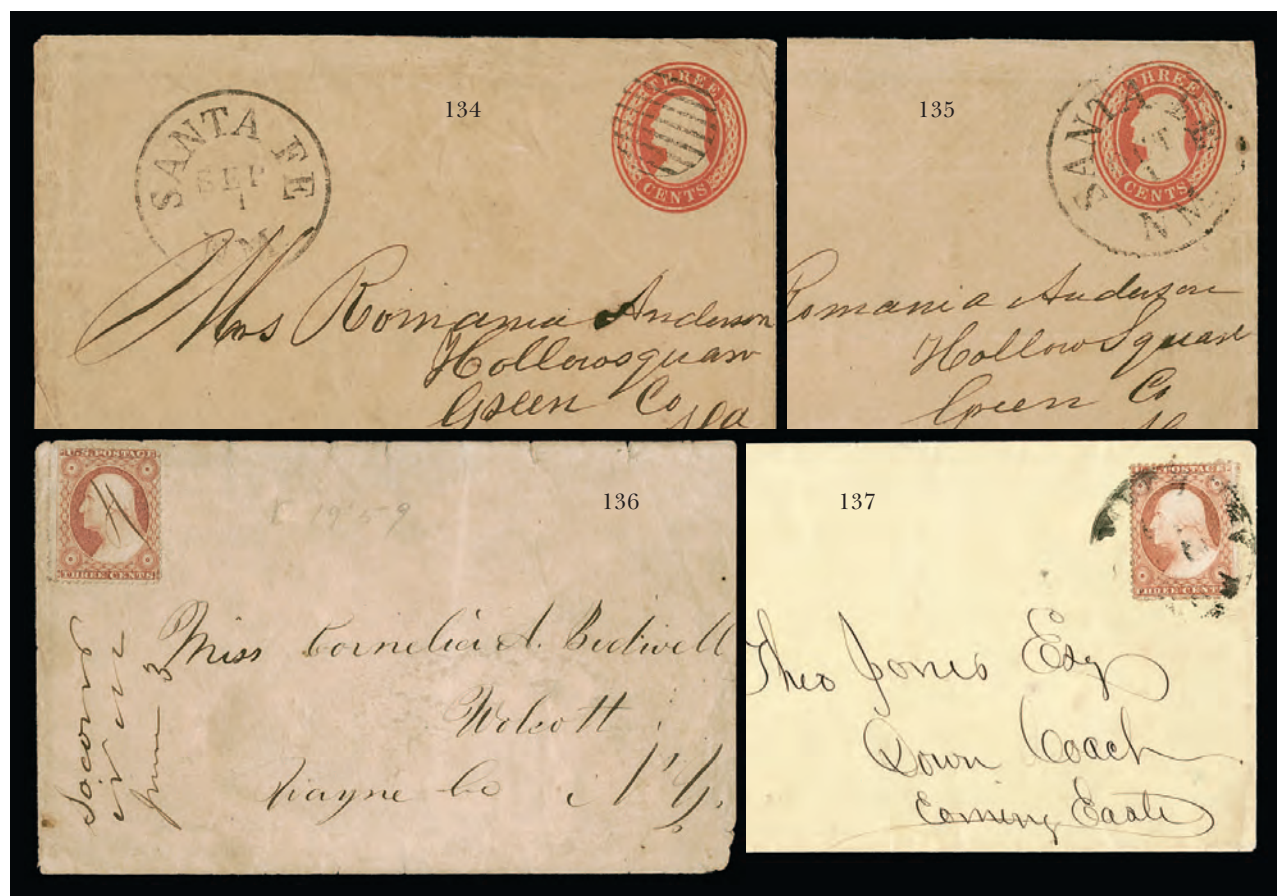 134
SANTA FE
SEP
1
N.M.
THREE
CENTS
Mrs Romania Anderson
Hollowsquare
Green Co
Ala
135
SANTA FE
1
N.M.
THREE
CENTS
Romania Anderson
Hollow Square
Green Co
136
U.S. POSTAGE
THREE CENTS
E 1959
Socorro
N M
June 3
Miss Cornelia A. Bidwell
Wolcott
Wayne Co N.Y.
137
U.S. POSTAGE
THREE CENTS
Theo Jones Esq
Down Coach
Coming East